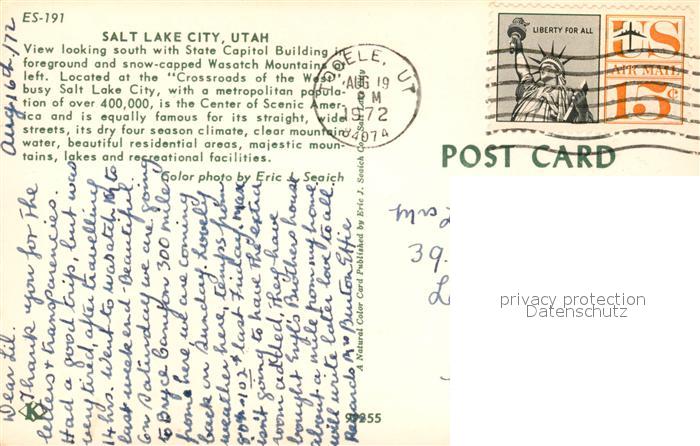 ES-191
SALT LAKE CITY, UTAH
View looking south with State Capitol Building in
foreground and snow-capped Wasatch Mountains
left. Located at the "Crossroads of the West",
busy Salt Lake City, with a metropolitan popula-
tion of over 400,000, is the Center of Scenic Amer-
ica and is equally famous for its straight, wide
streets, its dry four season climate, clear mountain
water, beautiful residential areas, majestic moun-
tains, lakes and recreational facilities.
Color photo by Eric J. Seaich
Aug, 16th, 172
Dear Lil.
Thank you for the
letters & transparencies.
Had a good trip, but was
very tired after travelling
14 hrs. Went to Wasatch Mt
last weekend - Beautiful
On Saturday we are going
to Bryce Canyon 300 miles
from here, we are coming
back on Sunday. Lovely
weather here, temps from
80°-102° last Friday. Max
isn't going to have the extra
room added. They have
bought brothers house
about a mile from my home
will write later love to all.
Burton Effie
A Natural Color Card Published by Eric J. Seaich Co., Salt Lake City
99255
K
TOOELE, UT
AUG 19
PM
1972
84074
LIBERTY FOR ALL
US
AIR MAIL
15¢
POST CARD
39
privacy protection
Datenschutz